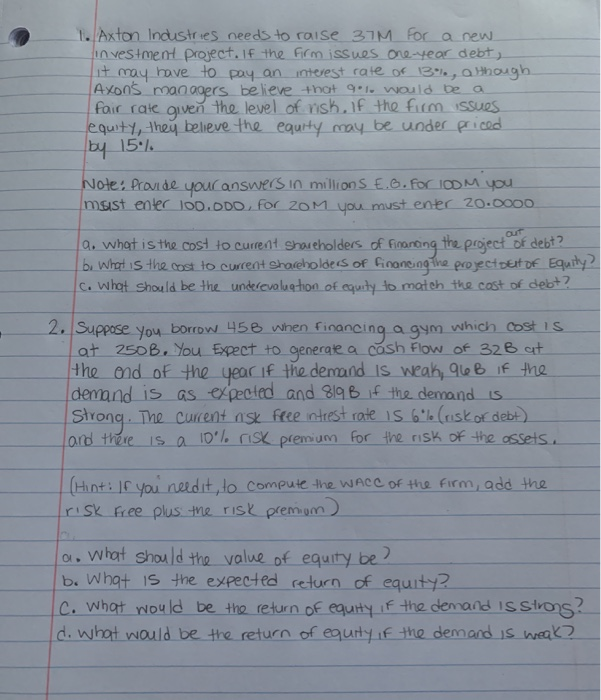 1. Axton Industries needs to raise 37M for a new
investment project. If the firm issues one-year debt,
it may have to pay an interest rate of 13%, although
Axon's managers believe that 9% would be a
fair rate given the level of risk. If the firm issues
equity, they believe the equity may be under priced
by 15%.
Note: Provide your answers in millions E.G. for 100M you
must enter 100.000, for 20M you must enter 20.0000
a. What is the cost to current shareholders of financing the project out of debt?
b. What is the cost to current shareholders of financing the project out of Equity?
c. What should be the underevaluation of equity to match the cost of debt?
2. Suppose you borrow 45B when financing a gym which cost is
at 250B. You Expect to generate a cash flow of 32B at
the end of the year if the demand is weak, 96B if the
demand is as expected and 819B if the demand is
Strong. The current risk free intrest rate is 6% (risk of debt)
and there is a 10% risk premium for the risk of the assets.
(Hint: If you need it, to compute the WACC of the firm, add the
risk free plus the risk premium)
a. What should the value of equity be?
b. What is the expected return of equity?
C. What would be the return of equity if the demand is strong?
d. What would be the return of equity if the demand is weak?